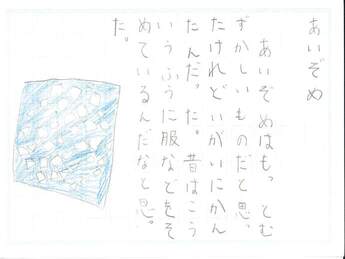 あいぞめ
あいぞめはもっとむ
ずかしいものだと思っ
たけれどいがいにかん
たんだった。昔はこう
いうふうに服などをそ
めているんだなと思っ
た。